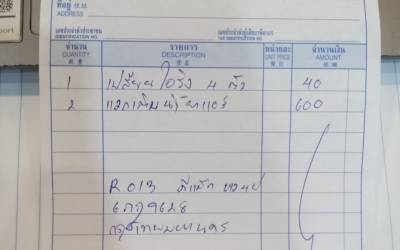 port
ที่อยู่
ADDRESS
เลขประจำตัวประชาชน
IDENTIFICATION NO.
เลขประจำตัวผู้เสียภาษีอากร
TAX IDENTIFICATION NO.
จำนวน รายการ หน่วยละ จำนวนเงิน
QUANTITY DESCRIPTION UNIT PRICE AMOUNT
1 เปลี่ยน โอริง 4 ตัว 40
2 600
R 013
6 กฎ 9628
กรุงเทพมหานคร